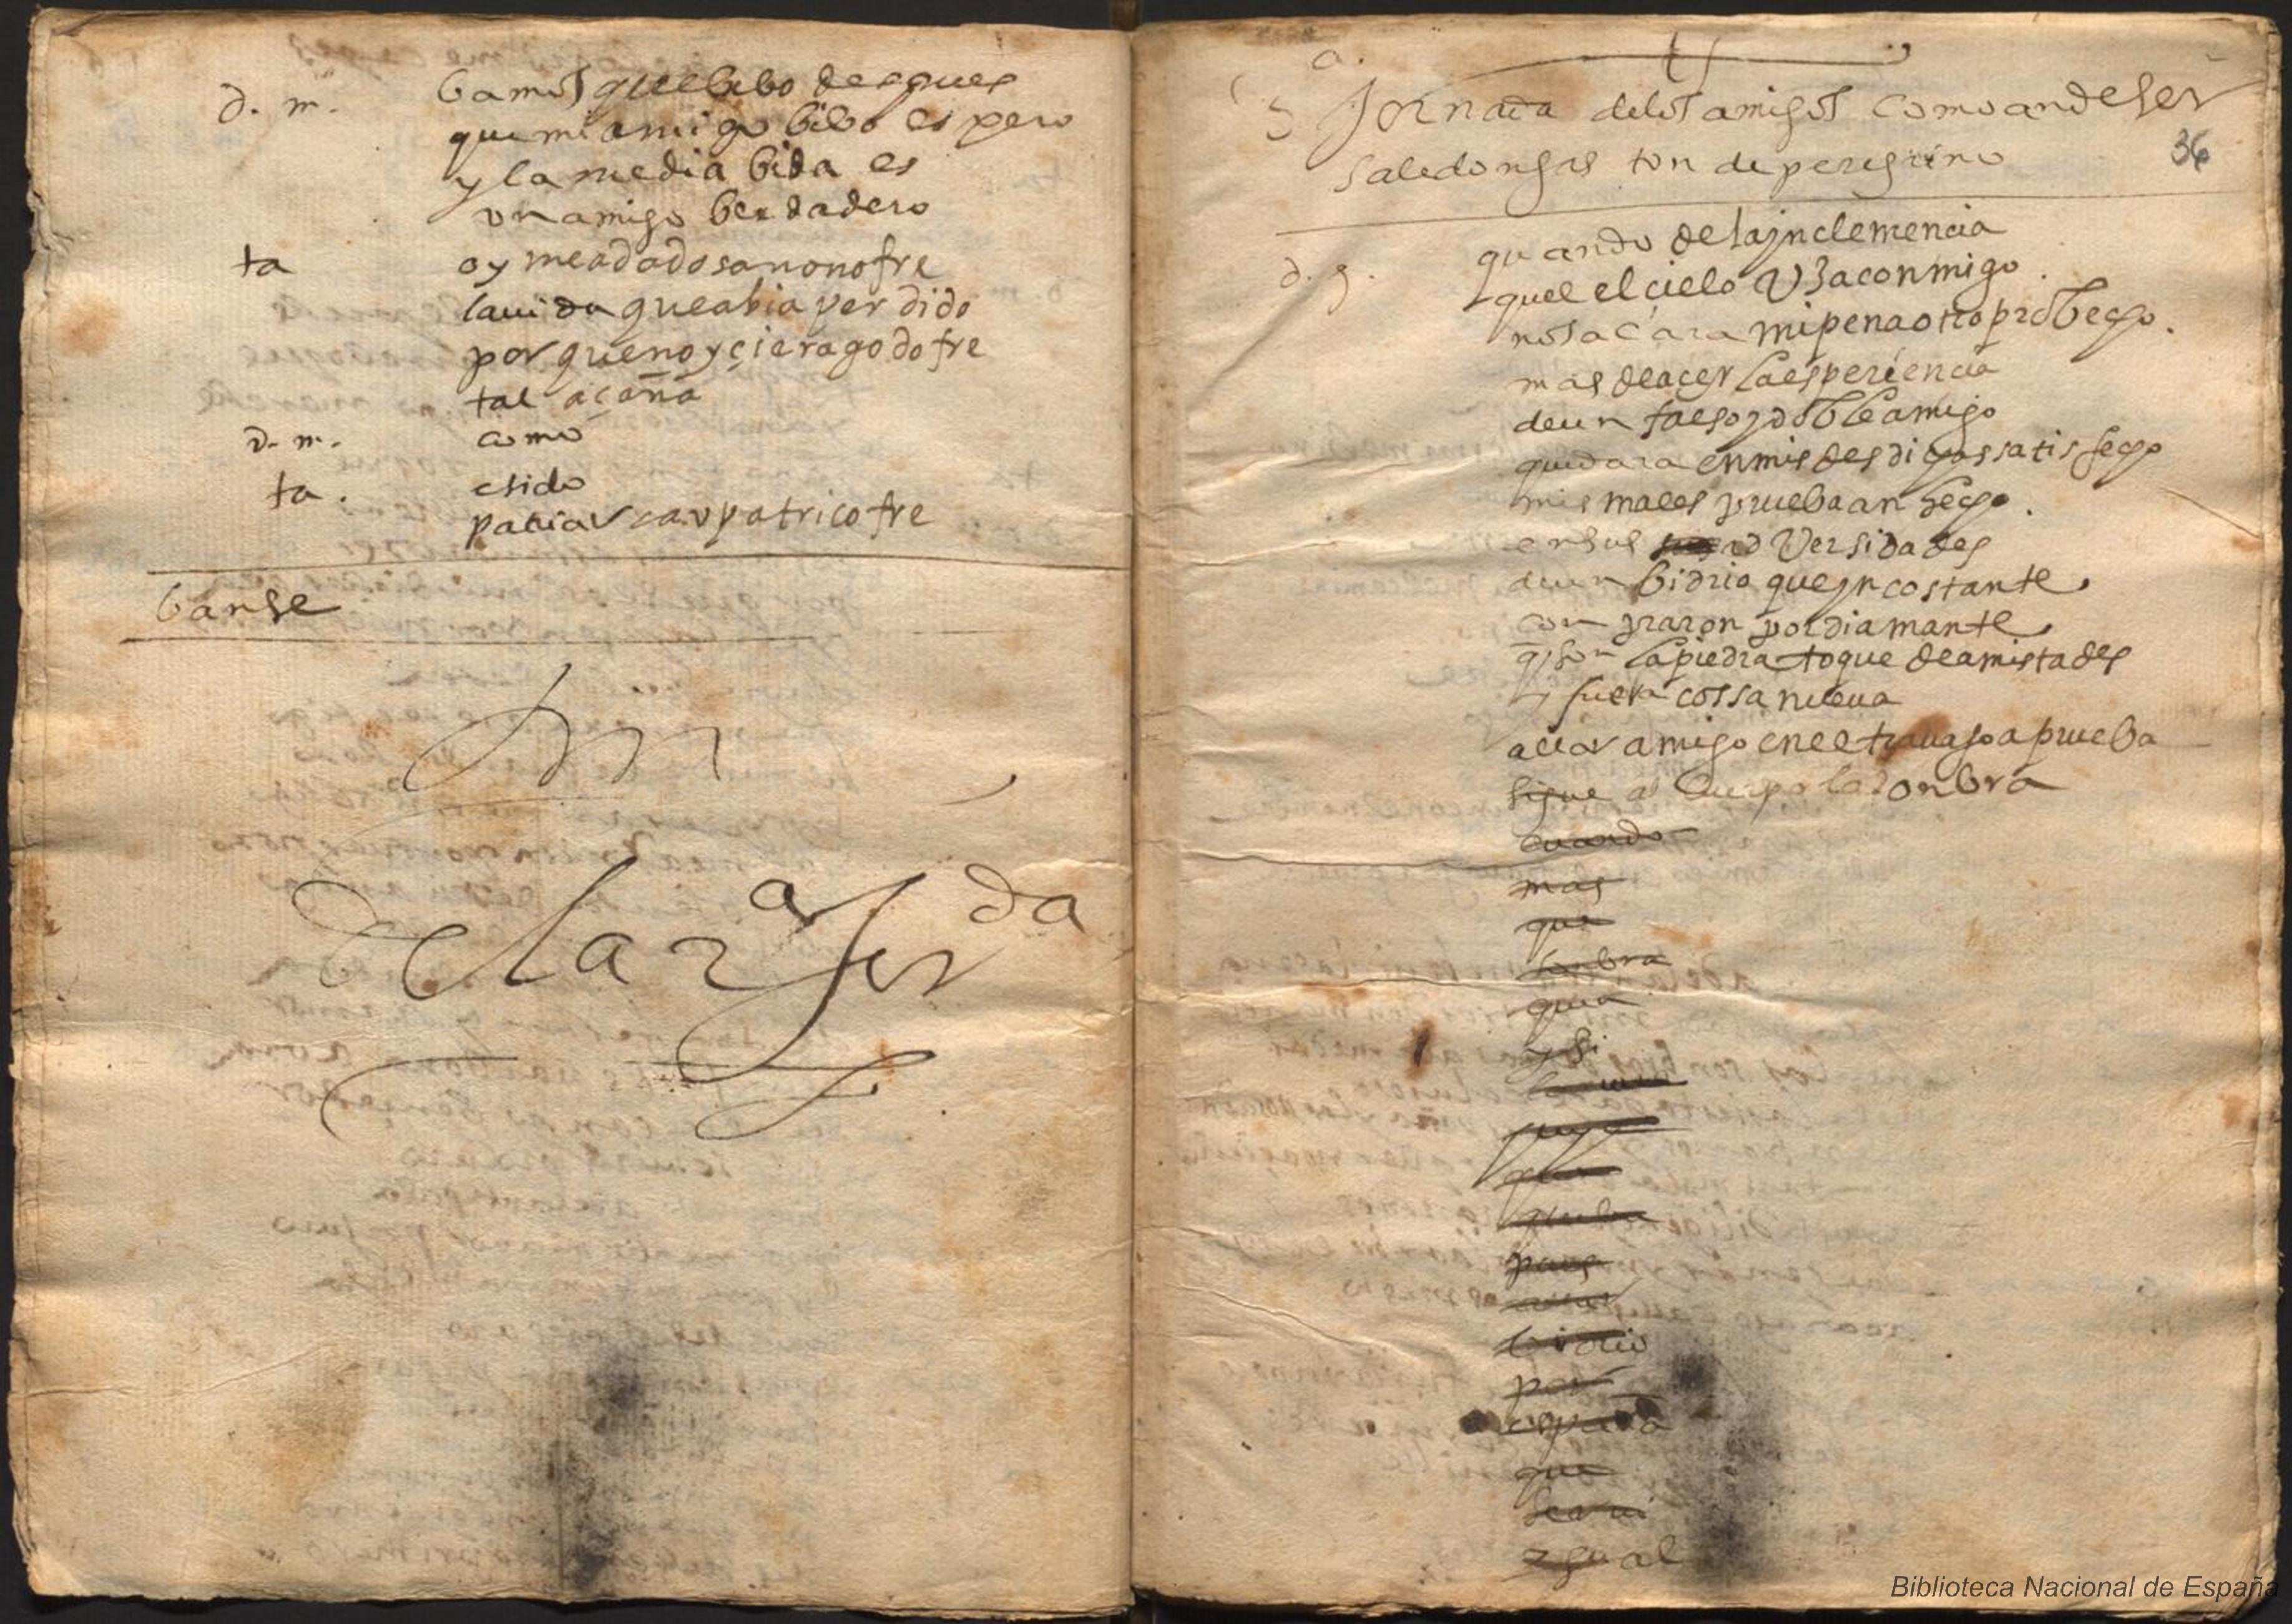 d. m. bamos que bibo despues
que mi amigo bibo es pero
y la media bida es
un amigo berdadero
ta oy me a dado san onofre
la uida que abia perdido
por que no yçiera godofre
tal açaña
d. m. como
ta. e sido
paular cau patricofre
banse
fin
de la 2 a Jor da
3 a Jornada de los amigos como an de ser
36
sale don gas ton de peregrino
d. g. quando de la jnclemencia
quel el cielo Usa con migo
no sacara mi pena otro probecho.
mas de acer la esperiencia
de un falso y doble amigo
quedara en mis desdichas satisfecho
mis males prueba an hecho.
en sus adVersidades
de un bidrio que ynco stante
con praron por diamante
q son la piedra toque de amistades
y fuera cossa nueua
allar amigo en el trauajo a prueba
sigue al cuerpo la sonbra
cuando
mas
que
sonbra
que
y si
que
pues
bidrio
por
espada
que
ygual
Biblioteca Nacional de España